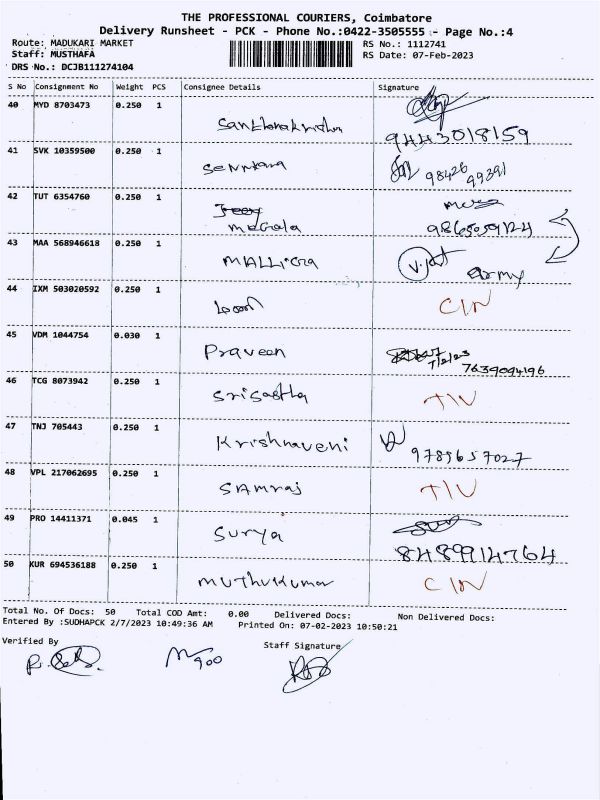 THE PROFESSIONAL COURIERS, Coimbatore
Delivery Runsheet - PCK - Phone No.:0422-3505555 - Page No.:4
Route: MADUKARI MARKET
Staff: MUSTHAFA
DRS No.: DCJB111274104
RS No.: 1112741
RS Date: 07-Feb-2023
S No Consignment No Weight PCS Consignee Details Signature
40 MYD 8703473 0.250 1
9443018159
41 SVK 10359500 0.250 1
98426 99391
42 TUT 6354760 0.250 1
Megala
43 MAA 568946618 0.250 1 MALLIGA
army
44 IXM 503020592 0.250 1 CIN
45 VDM 1044754 0.030 1 Praveen
7/2/23
7639094196
46 TCG 8073942 0.250 1 Srisastha
47 TNJ 705443 0.250 1 Krishnaveni
9789657027
48 VPL 217062695 0.250 1 Samraj
49 PRO 14411371 0.045 1 Surya
8489914764
50 KUR 694536188 0.250 1 Muthukumar CIN
Total No. Of Docs: 50 Total COD Amt: 0.00 Delivered Docs: Non Delivered Docs:
Entered By :SUDHAPCK 2/7/2023 10:49:36 AM Printed On: 07-02-2023 10:50:21
Verified By
Staff Signature